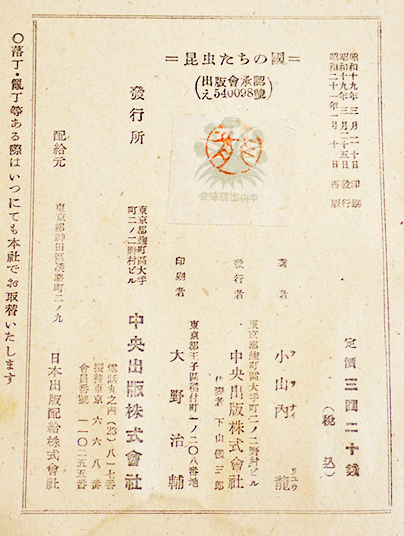 昭和十九年三月二十日印刷
昭和十九年三月二十五日發行
昭和二十一年一月十日再版
＝昆虫たちの國＝
(出版會承認え540098號)
定價三圓二十錢
(税込)
著者 小山內龍
發行者
東京都麹町區大手町二ノ二野村ビル
中央出版株式會社
代表者 下山儀三郎
印刷者
東京都王子區稲付町一ノ二〇八番地
大野治輔
發行所
東京都麹町區大手町二ノ二野村ビル
中央出版株式會社
電話丸之內(23)八一一七番
振替東京六六八番
會員番號一一〇二五五番
配給元
東京都神田區淡路町二ノ九
日本出版配給株式會社
〇落丁・亂丁等ある際はいつにても本社でお取替いたします